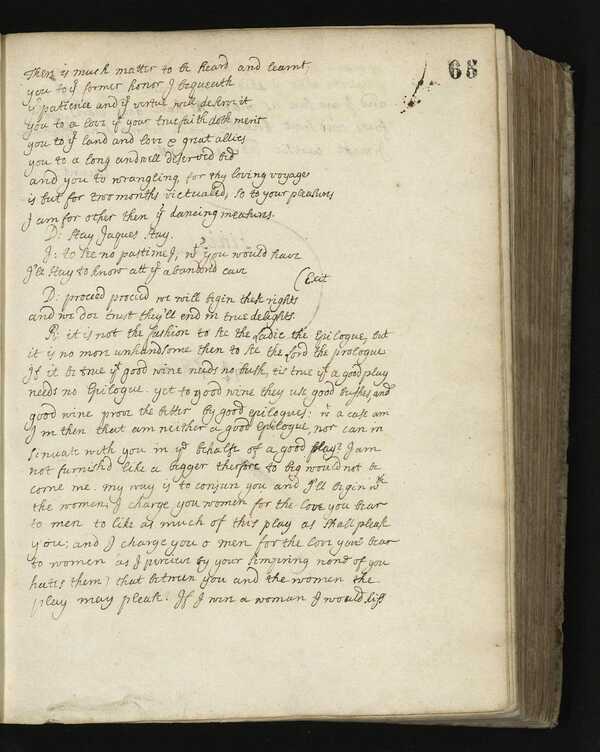 65
There is much matter to be heard and learnt,
you to yr former honor I bequeath
yr patience and yr virtue well deserv it
you to a love yt your true faith doth merit
you to yr land and love & great allies
you to a long and well deserved bed
and you to wrangling, for thy loving voyage
is but for two months victualed, so to your pleasures
I am for other then yr dancing measures.
D: Stay Jaques Stay.
J: to see no pastime J, wt you would have
I'll stay to know att yr abandon'd cave
(Exit
D: proceed proceed we will begin these rights
and we doe trust they'll end in true delights.
R: it is not the fashion to see the Ladie the Epilogue, but
it is no more unhandsome then to see the Lord the prologue
If it be true yt good wine needs no bush, tis true yt a good play
needs no Epilogue. yet to good wine they use good bushes, and
good wine prove the better By good epilogues: wt a case am
I in then that am neither a good Epilogue, nor can in
sinuate with you in ye behalfe of a good play? I am
not furnish'd like a begger therfore to beg would not be
come me. my way is to conjure you and I'll begin wth
the women; I charge you women for the love you bear
to men to like as much of this play as shall please
you; and I charge you o men for the love you bear
to women (as I perceive by your simpring none of you
hates them) that between you and the women the
play may please. If I wer a woman I would kiss